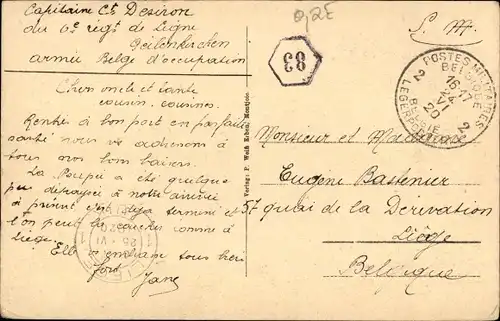 Capitaine Ct Desiron
du 6e régt de Ligne
Geilenkirchen
armée Belge d'occupation
Chers oncle et tante
cousin, cousines.
Rentré à bon port en parfaite
santé nous vous adressons à
tous nos bons baisers.
La Poupée a été quelque
peu à notre arrivée
à présent est déjà terminé et
l'on peut la coucher comme à
Liège.
Elle embrasse tous bien
fort
Jane
0,2E
83
S. M.
POSTES MILITAIRES
BELGIQUE
2 2
16-17
24
VI
20
LEGERPOSTERIE
Verlag: P. Weiß Erben, Montjoie.
Monsieur et Madame
Eugène Bastenier
57 quai de la Dérivation
Liège
Belgique